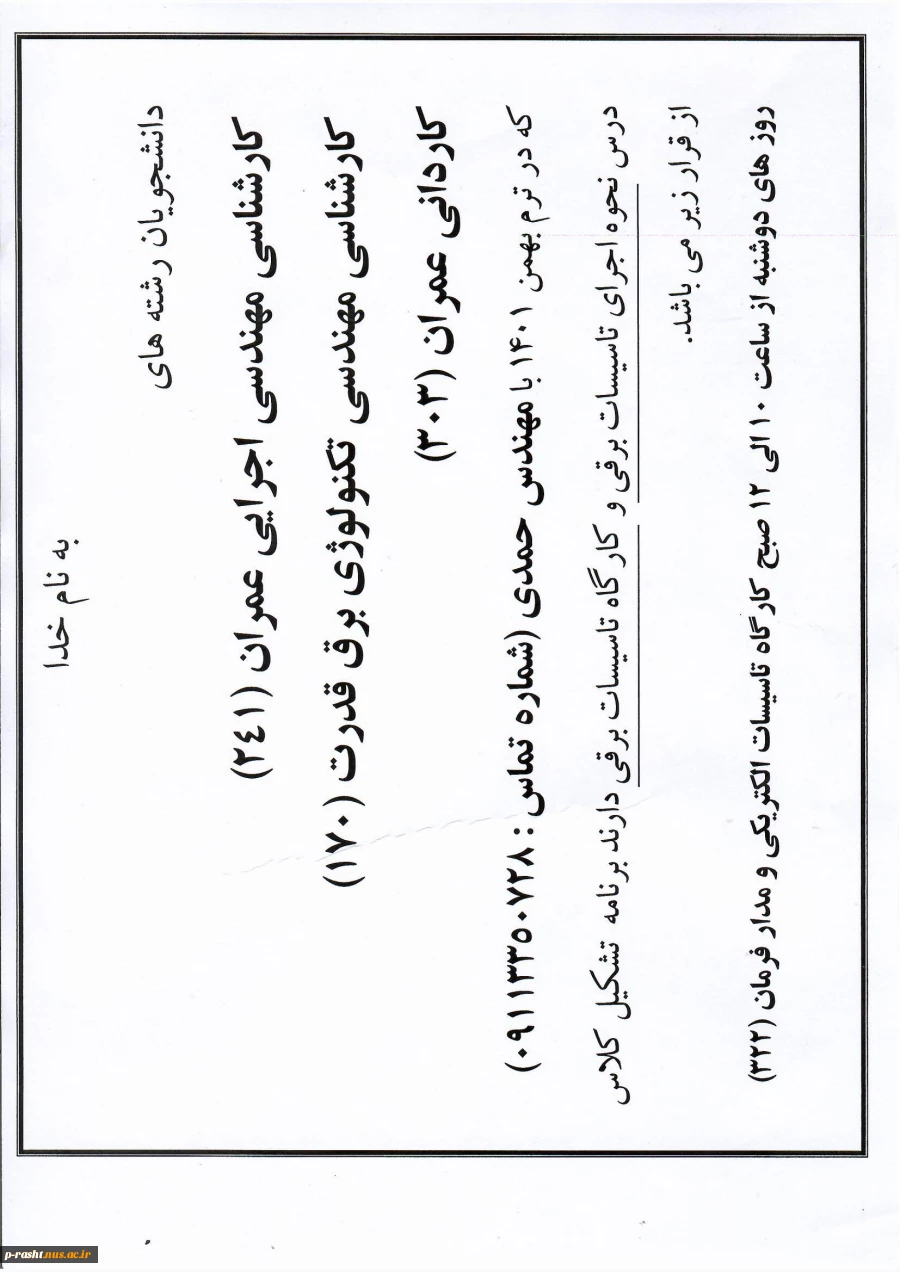 به نام خدا
دانشجویان رشته های
کارشناسی مهندسی اجرایی عمران (۲٤۱)
کارشناسی مهندسی تکنولوژی برق قدرت (۱۷۰)
کاردانی عمران (۳۰۳)
که در ترم بهمن ۱۴۰۱ با مهندس حمدی (شماره تماس : ۰۹۱۱۳۳۵۰۷۲۸)
درس نحوه اجرای تاسیسات برقی و کارگاه تاسیسات برقی دارند برنامه تشکیل کلاس
از قرار زیر می باشد.
روز های دوشنبه از ساعت ۱۰ الی ۱۲ صبح کارگاه تاسیسات الکتریکی و مدار فرمان (۳۲۲)
p-rasht.nus.ac.ir